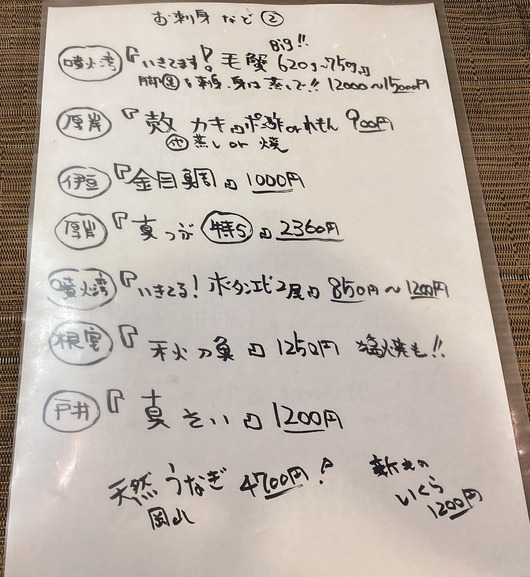 お刺身など②
Big!!
噴火湾『いきてます！毛蟹 620g~750g』
脚④を刺身、身は蒸して!! 12000～15000円
厚岸『殻カキ』ポン酢orれもん 900円
他 蒸し or 焼
伊豆『金目鯛』1000円
厚岸『真つぶ 特S』2360円
噴火湾『いきてる！ボタンエビ2尾』850円～1200円
根室『秋刀魚』1250円 塩焼も!!
戸井『真そい』1200円
天然うなぎ 4700円！
岡山
新ものいくら
1200円